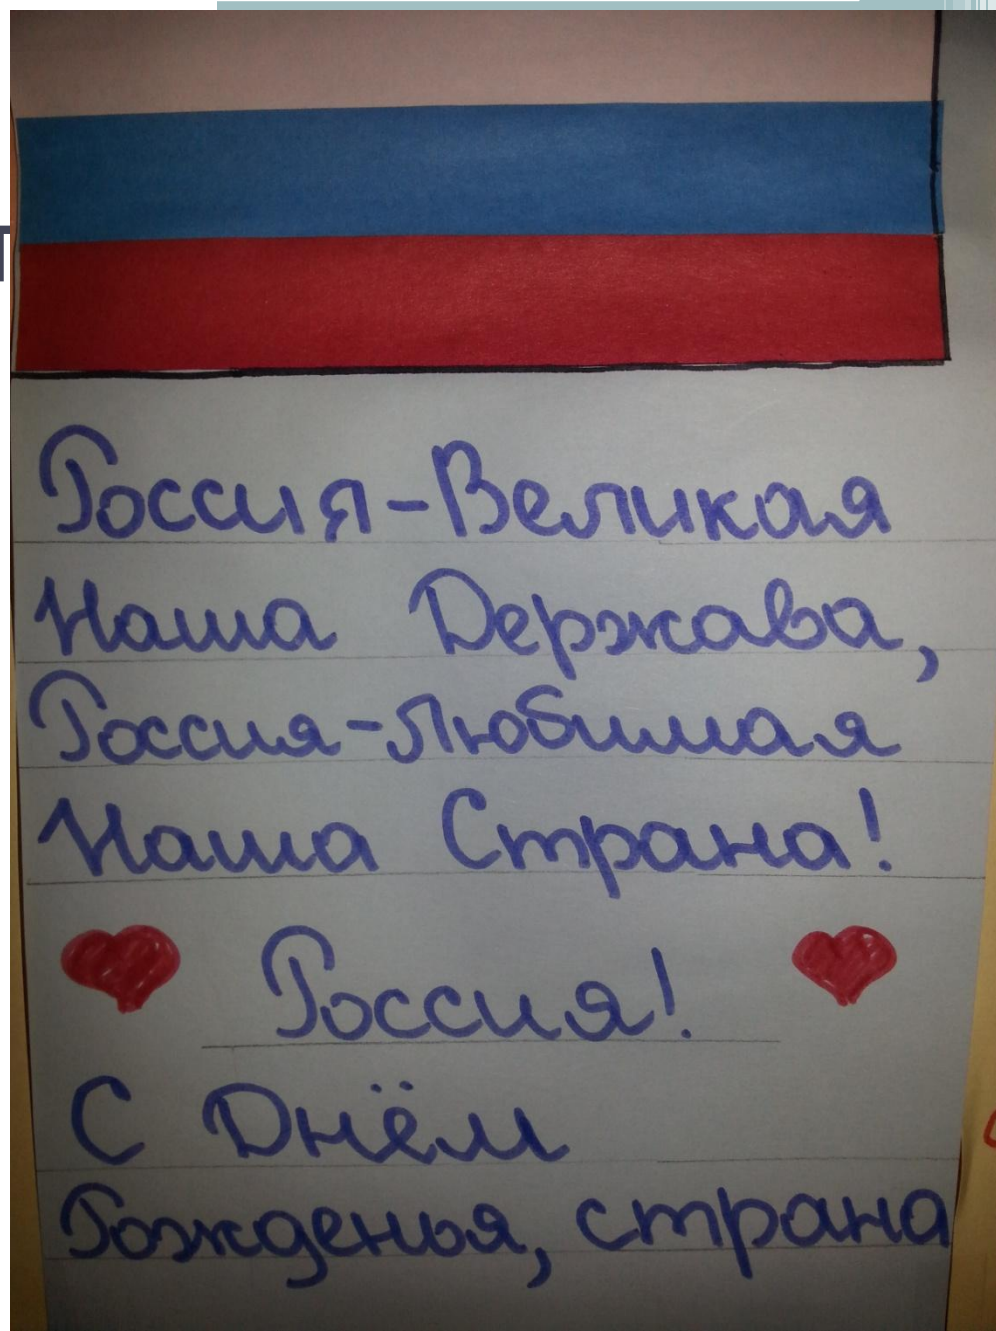 Россия-Великая
Наша Держава,
Россия-Любимая
Наша Страна!
Россия!
С Днём
Рожденья, страна